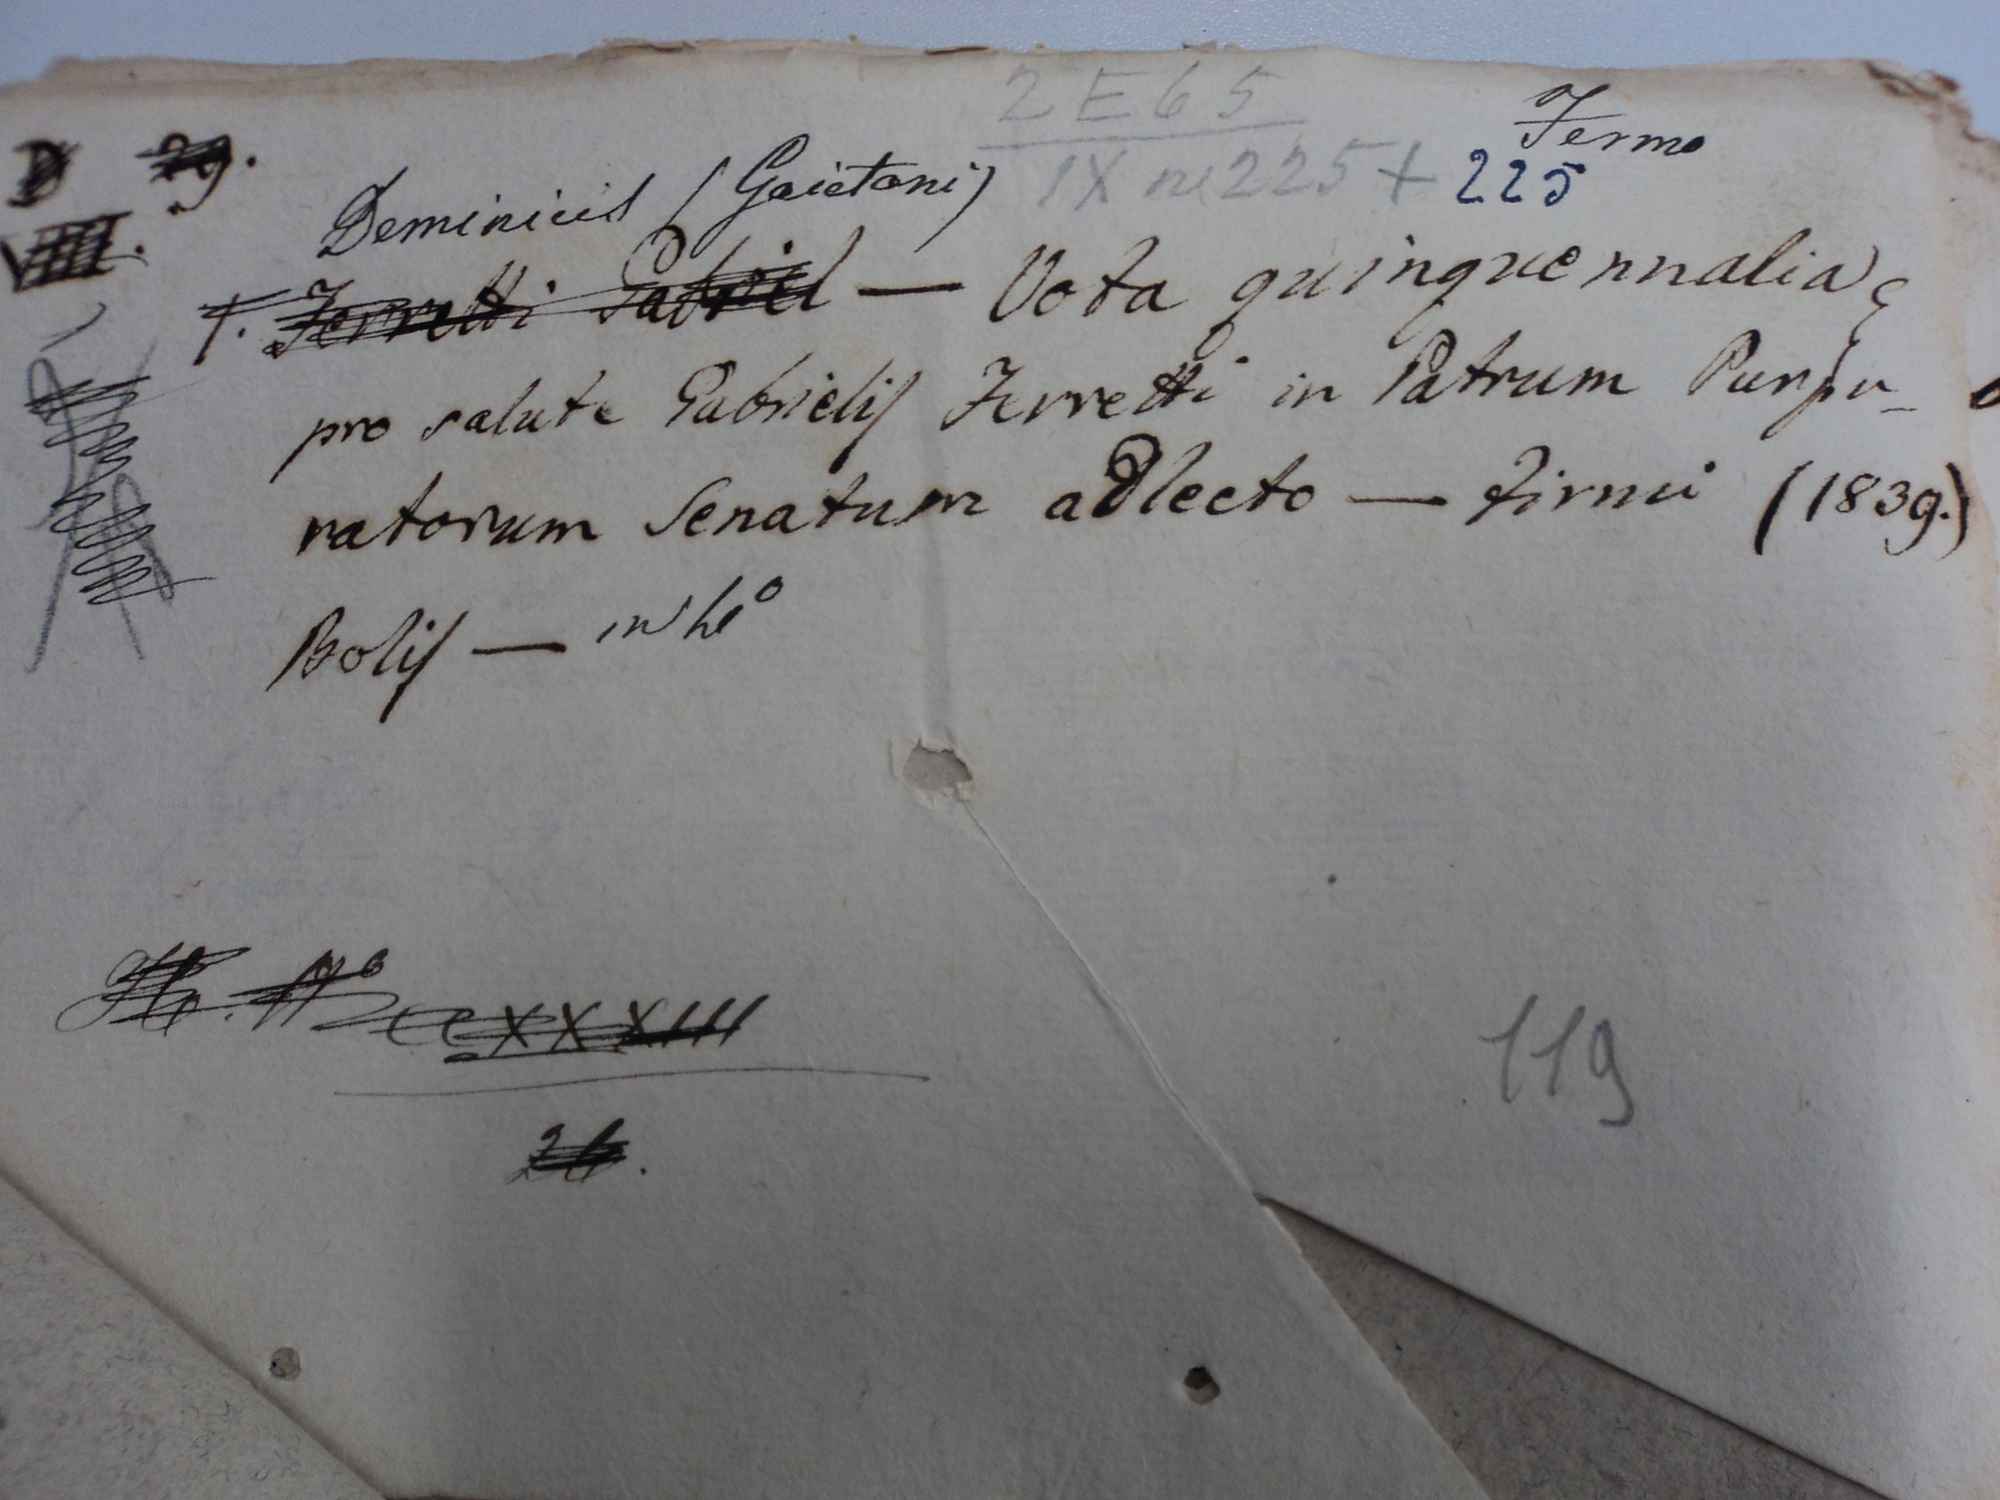 2E65
Fermo
D 29.
IX n 225 + 225
Deminicis (Gaietani)
VIII.
T. Ferretti Gabriel — Vota quinquennalia
pro salute Gabrielis Ferretti in Patrum Purpu-
ratorum Senatum adlecto — Firmi (1839.)
Bolis — in
CCXXXIII
26.
119